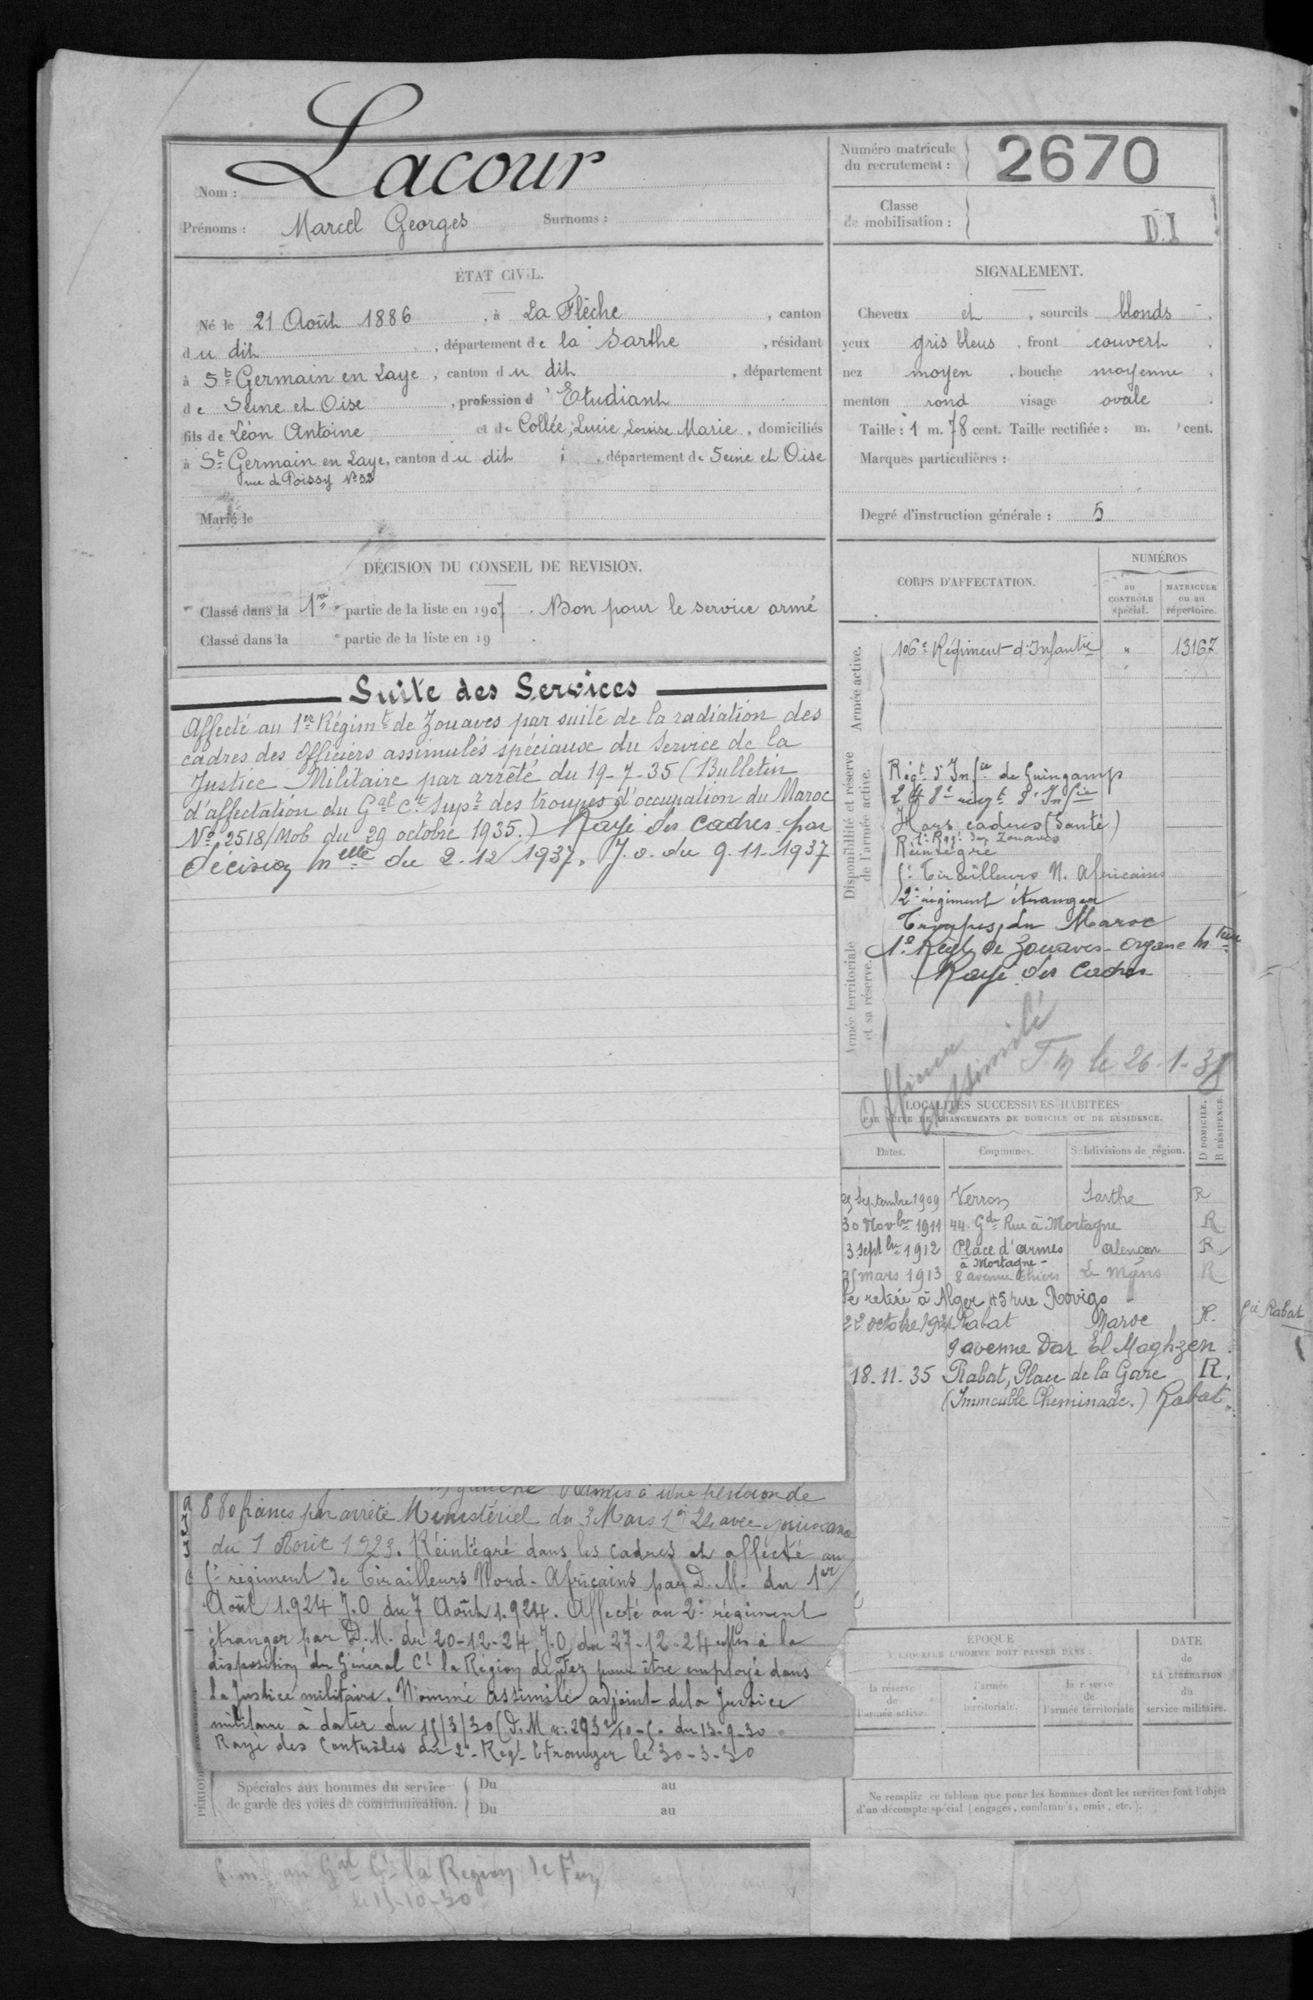 Nom : Lacour
Prénoms : Marcel Georges Surnoms :
Numéro matricule du recrutement : 2670
Classe de mobilisation : D.I
ÉTAT CIVIL.
Né le 21 Août 1886, à La Flèche, canton
du dit, département de la Sarthe, résidant
à St Germain en Laye, canton du dit, département
de Seine et Oise, profession d' Etudiant
fils de Léon Antoine et de Collée, Lucie, Louise Marie, domiciliés
à St Germain en Laye, canton du dit, département de Seine et Oise
rue de Poissy No 32
Marié le
SIGNALEMENT.
Cheveux et, sourcils blonds.
yeux gris bleus, front couvert,
nez moyen, bouche moyenne,
menton rond visage ovale.
Taille : 1 m. 78 cent. Taille rectifiée : m. cent.
Marques particulières :
Degré d'instruction générale : 5
DÉCISION DU CONSEIL DE REVISION.
Classé dans la 1re partie de la liste en 1907. Bon pour le service armé
Classé dans la e partie de la liste en 19 .
Suite des Services
Affecté au 1er Régimt de Zouaves par suite de la radiation des
cadres des Officiers assimilés spéciaux du Service de la
Justice Militaire par arrêté du 19-7-35 (Bulletin
d'affectation du Gal Ct Supr des troupes d'occupation du Maroc
No 2518/Mob du 29 octobre 1935.) Rayé des cadres par
décision Melle du 2-12/1937. J.O. du 9.11-1937
CORPS D'AFFECTATION.
NUMÉROS
au CONTRÔLE spécial.
MATRICULE ou au répertoire.
Armée active.
106e Régiment d'Infantie " 13167
Disponibilité et réserve de l'armée active.
Régt d'Infie de Guingamp
248e régt d'Infie
Hors cadres (Santé)
1er Reg. de Zouaves
Réintégré
5e Tirailleurs N. Africains
2e régiment étranger
Troupes du Maroc
Armée territoriale et sa réserve.
1er Régt de Zouaves
Rayé des Cadres
Officier assimilé
le 26-1-38
LOCALITÉS SUCCESSIVES HABITÉES
PAR SUITE DE CHANGEMENTS DE DOMICILE OU DE RÉSIDENCE.
Dates. Communes. Subdivisions de région. D DOMICILE. R RÉSIDENCE.
Septembre 1909 Verron Sarthe R
30 Novbre 1911 44 Gde Rue à Mortagne R
3 septbre 1912 Place d'armes à Mortagne Alençon R
mars 1913 8 avenue Thiers Le Mans R
Se retire à Alger 45 rue Rovigo
22 octobre Rabat Maroc R. Rabat
9 avenue Dar El Maghzen
18-11-35 Rabat, Place de la Gare R.
(Immeuble Cheminade.) Rabat.
gauche Admis à une pension de
880 francs par arrêté Ministériel du 3 Mars 1924 avec jouissance
du 1 Août 1923. Réintégré dans les cadres et affecté au
5e régiment de Tirailleurs Nord-Africains par D.M. du 1er
Août 1.924 J.O du 7 Août 1.924. Affecté au 2e régiment
étranger par D.M. du 20-12-24 J.O du 27-12-24 Mis à la
disposition du Général Ct la Région de Fez pour être employé dans
la Justice militaire. Nommé assimilé adjoint de la Justice
militaire à dater du 15/3/30 du 13-9-30
Rayé des Contrôles du 2e Régt Etranger le 30-3-30
PÉRIODES
Spéciales aux hommes du service de garde des voies de communication. Du au
Du au
ÉPOQUE
À LAQUELLE L'HOMME DOIT PASSER DANS :
la réserve de l'armée active.
l'armée territoriale.
la réserve de l'armée territoriale
DATE de LA LIBÉRATION du service militaire.
Ne remplir ce tableau que pour les hommes dont les services font l'objet
d'un décompte spécial (engagés, condamnés, omis, etc.).
au Gal Ct la Région de Fez
le 15-10-30